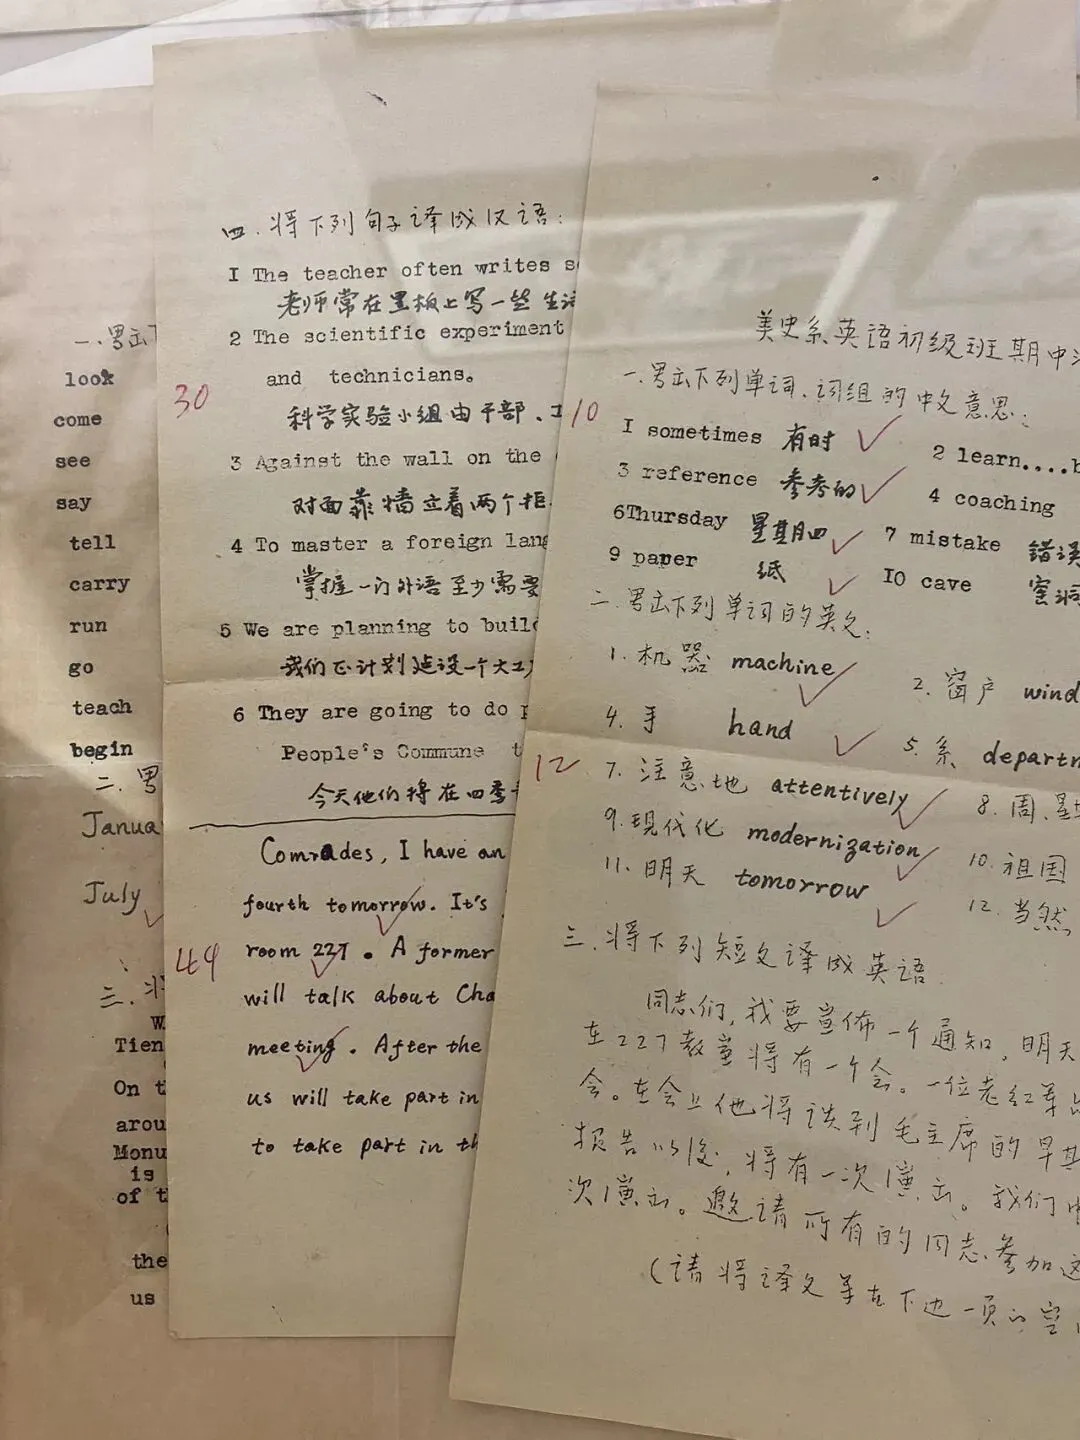 一、写出下
look
come
see
say
tell
carry
run
go
teach
begin
二、写
Janua
July
三、将
W
Tien
On t
arou
Monu
is
of t
the
us
四、将下列句子译成汉语:
1 The teacher often writes s
老师常在黑板上写一些生
2 The scientific experiment
and technicians.
30
科学实验小组由干部、工
3 Against the wall on the
对面靠墙立着两个柜
4 To master a foreign lang
掌握一门外语至少需要
5 We are planning to build
我们正计划建设一个大工
6 They are going to do p
People's Commune t
今天他们将在四季
Comrades, I have an
fourth tomorrow. It's
44
room 227. A former
will talk about Cha
meeting. After the
us will take part in
to take part in th
美史系英语初级班期中
一、写出下列单词、词组的中文意思:
10
1 sometimes 有时 2 learn....b
3 reference 参考的 4 coaching
6Thursday 星期四 7 mistake 错误
9 paper 纸 10 cave 窑洞
二、写出下列单词的英文:
1. 机器 machine 2. 窗户 wind
4. 手 hand 5. 系 departm
12
7. 注意地 attentively 8. 周、星
9. 现代化 modernization 10. 祖国
11. 明天 tomorrow 12. 当然
三、将下列短文译成英语
同志们,我要宣佈一个通知,明天
在227教室将有一个会。一位老红军
会。在会上他将谈到毛主席的早期
报告以后,将有一次演出。我们中
次演出。邀请所有的同志参加这
(请将译文写在下边一页的空